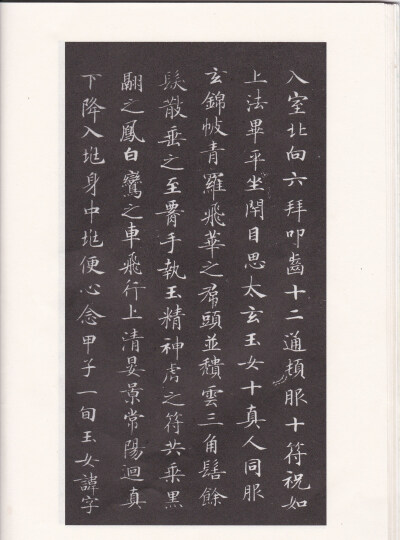 入室北向六拜叩齒十二通頓服十符祝如
上法畢平坐閉目思太玄玉女十真人同服
玄錦帔青羅飛華之帬頭並穨雲三角髻餘
髮散垂之至䙅手執玉精神虎之符共乘黑
翮之鳳白鸞之車飛行上清晏景常陽迴真
下降入垗身中垗便心念甲子一旬玉女諱字